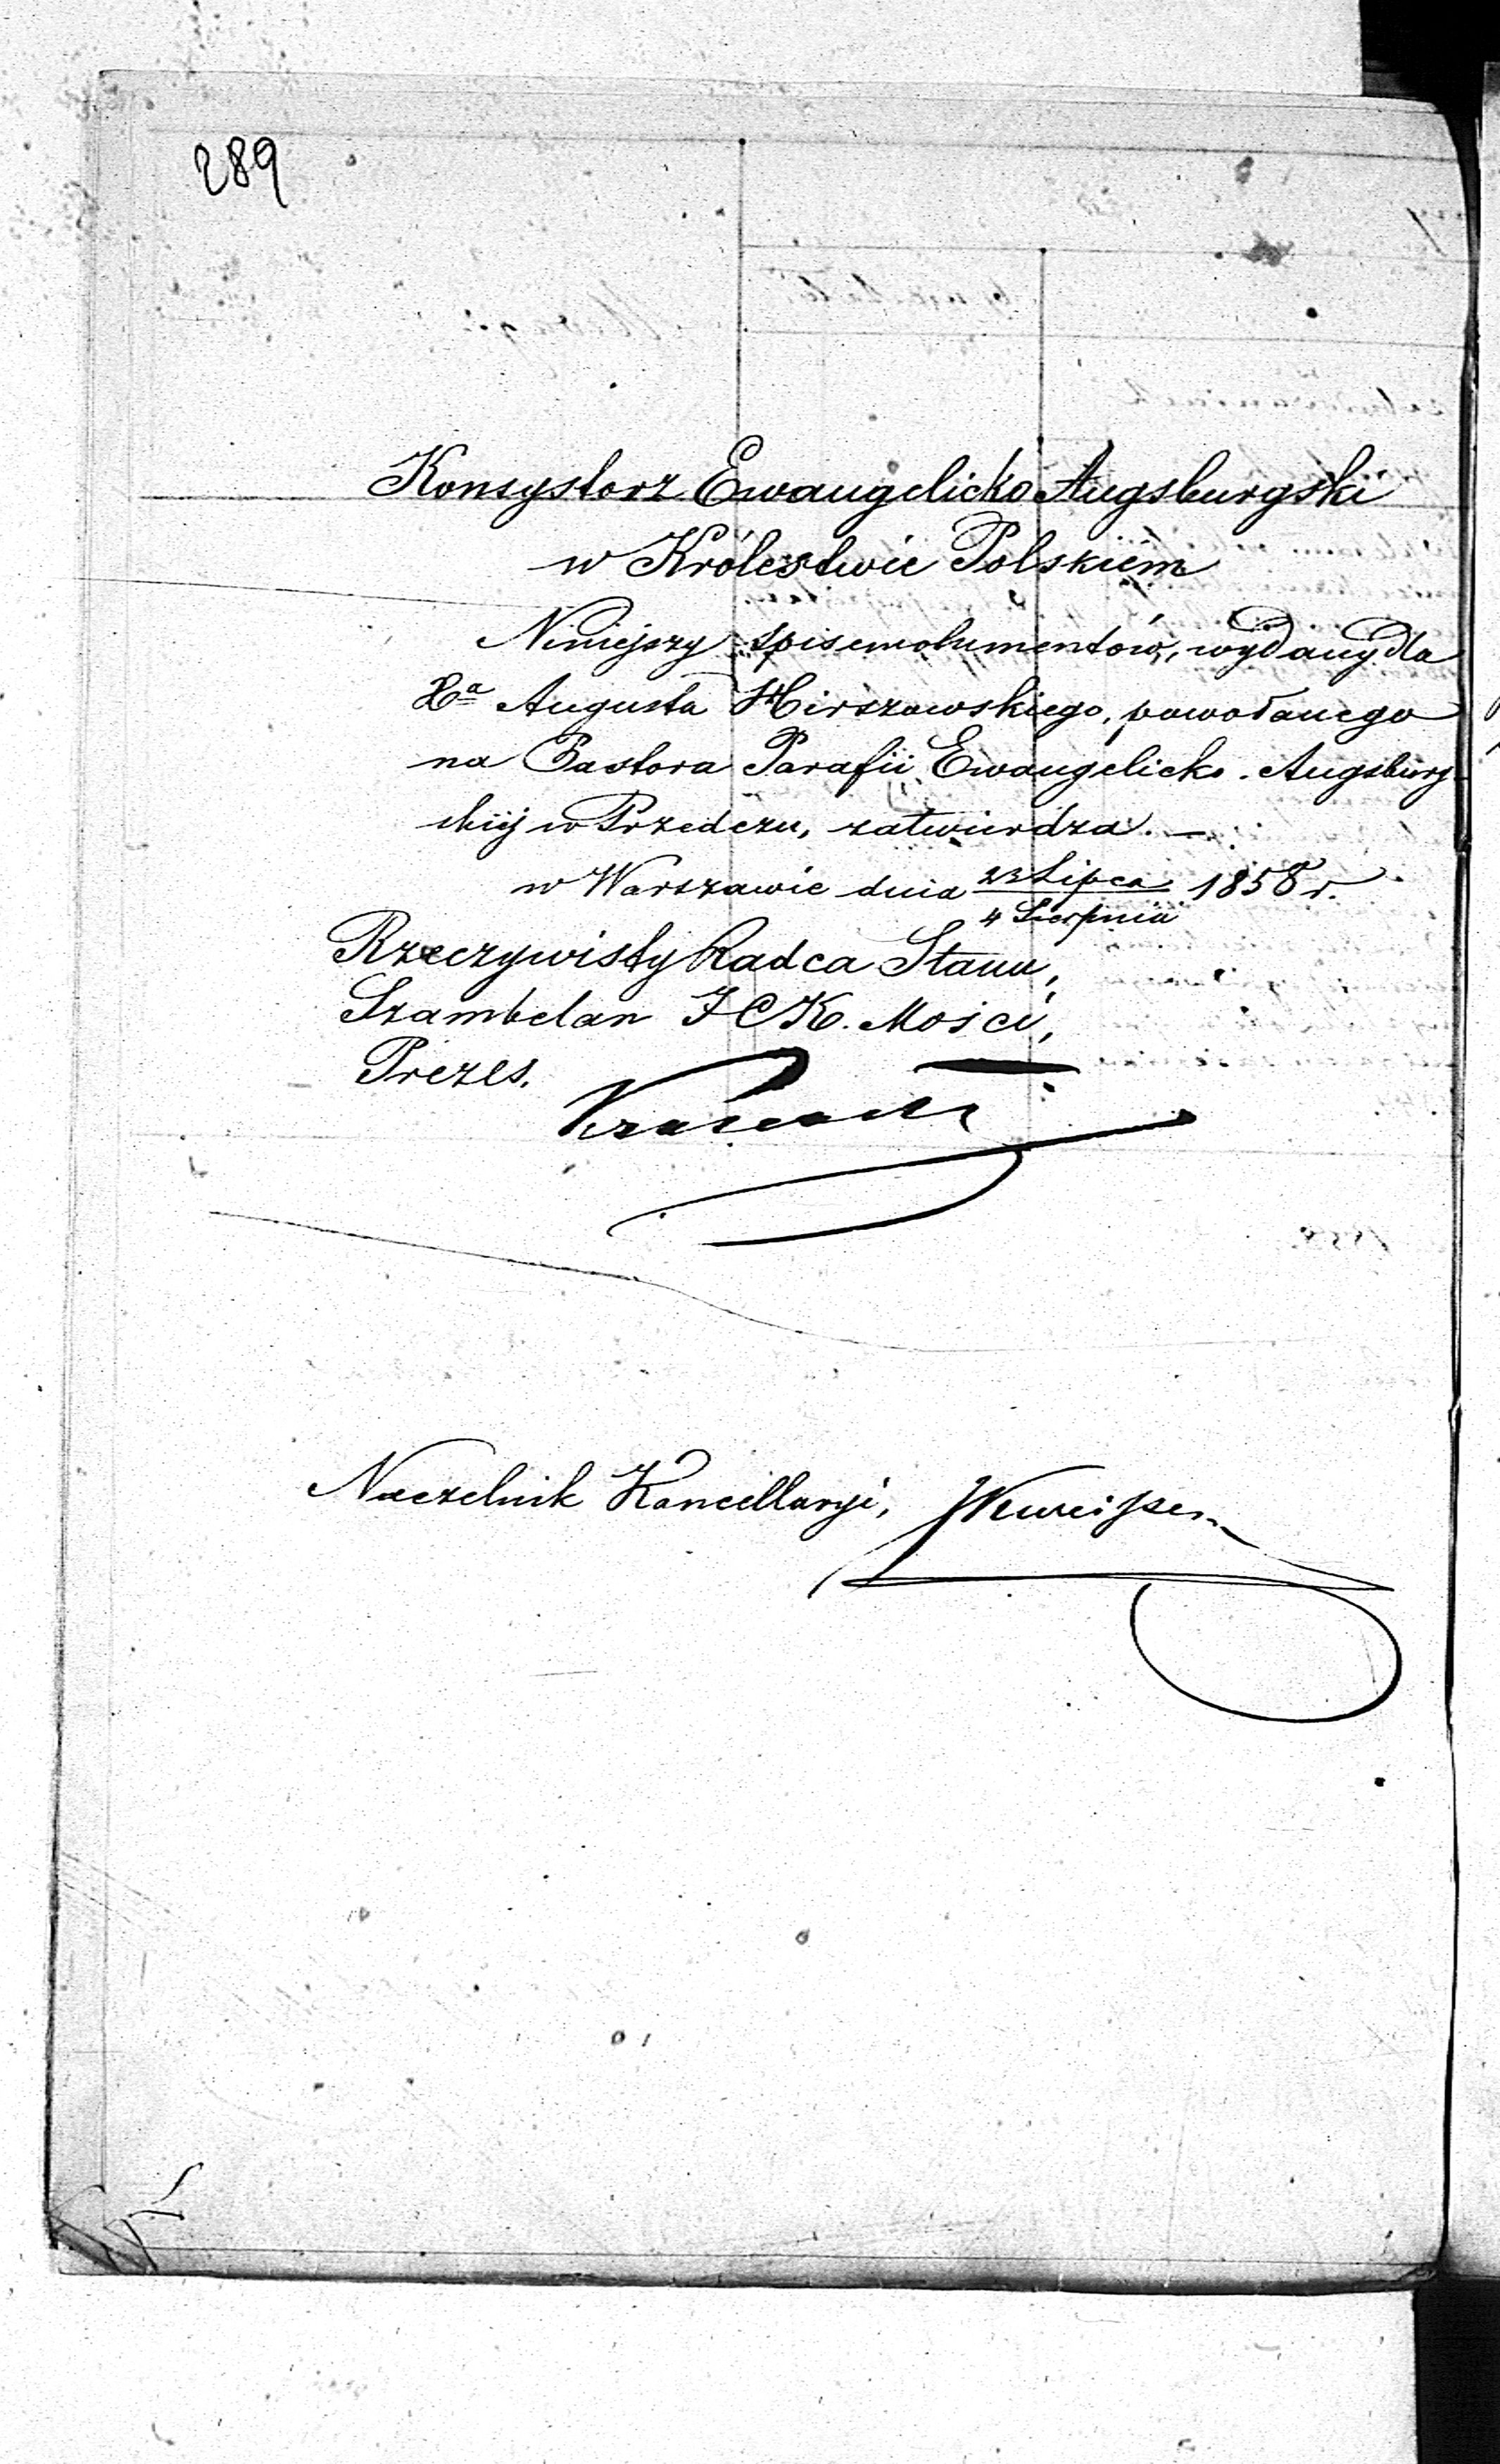 289
Konsystorz Ewangelicko Augsburgski
w Królestwie Polskiem
Niniejszy spis emolumentów, wydany dla
Xa Augusta Hirszowskiego, powołanego
na Pastora Parafii Ewangelicko-Augsburg-
skiej w Przedczu, zatwierdza. —
w Warszawie dnia 23 Lipca / 4 Sierpnia 1858 r.
Rzeczywisty Radca Stanu,
Szambelan J C K. Mości,
Prezes.
Naczelnik Kancellaryi,